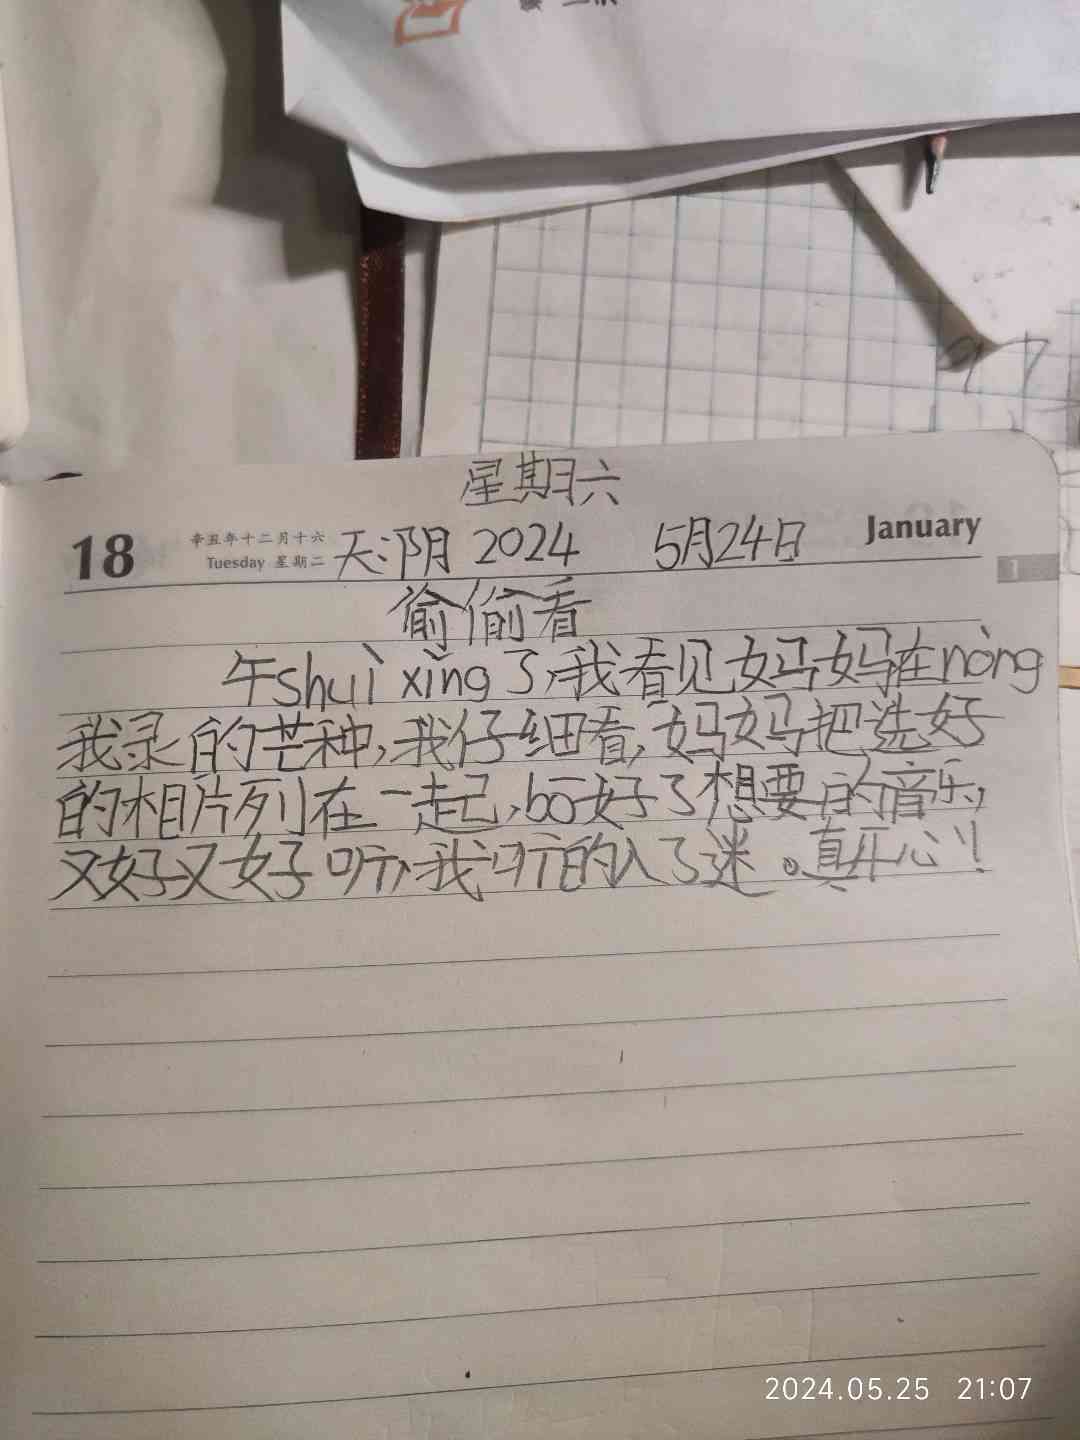 星期六
18 辛丑年十二月十六 Tuesday 星期二 天:阴 2024 5月24日 January
1
偷偷看
午shuì xǐng了,我看见妈妈在nòng
我录的芒种,我仔细看,妈妈把选好
的相片列在一起,bō好了想要的音乐,
又好又好听,我听的入了迷。真开心!
2024.05.25 21:07